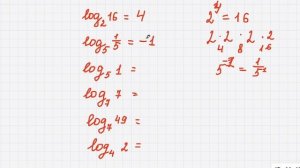 log₂ 16 = 4
log₅ 1/5 = -1
log₅ 1 =
log₇ 7 =
log₇ 49 =
log₄ 2 =
2^y = 16
2 · 2 · 2 · 2
4 8 16
5^-1 = 1/5